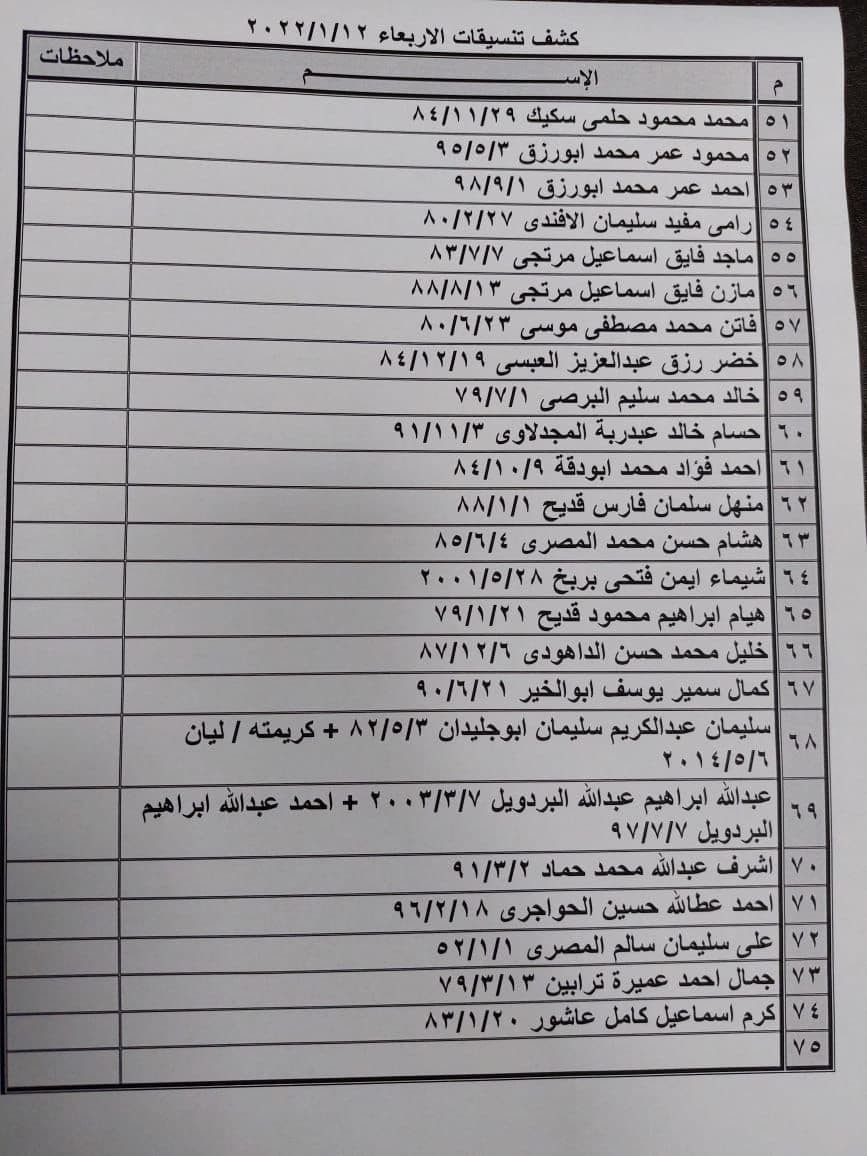 كشف تنسيقات الاربعاء ٢٠٢٢/١/١٢
م الإســـــــــم ملاحظات
٥١ محمد محمود حلمى سكيك ٨٤/١١/٢٩
٥٢ محمود عمر محمد ابورزق ٩٥/٥/٣
٥٣ احمد عمر محمد ابورزق ٩٨/٩/١
٥٤ رامى مفيد سليمان الافندى ٨٠/٢/٢٧
٥٥ ماجد فايق اسماعيل مرتجى ٨٣/٧/٧
٥٦ مازن فايق اسماعيل مرتجى ٨٨/٨/١٣
٥٧ فاتن محمد مصطفى موسى ٨٠/٦/٢٣
٥٨ خضر رزق عبدالعزيز العبسى ٨٤/١٢/١٩
٥٩ خالد محمد سليم البرصى ٧٩/٧/١
٦٠ حسام خالد عبدربة المجدلاوى ٩١/١١/٣
٦١ احمد فؤاد محمد ابودقة ٨٤/١٠/٩
٦٢ منهل سلمان فارس قديح ٨٨/١/١
٦٣ هشام حسن محمد المصرى ٨٥/٦/٤
٦٤ شيماء ايمن فتحى بربخ ٢٠٠١/٥/٢٨
٦٥ هيام ابراهيم محمود قديح ٧٩/١/٢١
٦٦ خليل محمد حسن الداهودى ٨٧/١٢/٦
٦٧ كمال سمير يوسف ابوالخير ٩٠/٦/٢١
٦٨ سليمان عبدالكريم سليمان ابوجليدان ٨٢/٥/٣ + كريمته / ليان
٢٠١٤/٥/٦
٦٩ عبدالله ابراهيم عبدالله البردويل ٢٠٠٣/٣/٧ + احمد عبدالله ابراهيم
البردويل ٩٧/٧/٧
٧٠ اشرف عبدالله محمد حماد ٩١/٣/٢
٧١ احمد عطالله حسين الحواجرى ٩٦/٢/١٨
٧٢ على سليمان سالم المصرى ٥٢/١/١
٧٣ جمال احمد عميرة ترابين ٧٩/٣/١٣
٧٤ كرم اسماعيل كامل عاشور ٨٣/١/٢٠
٧٥